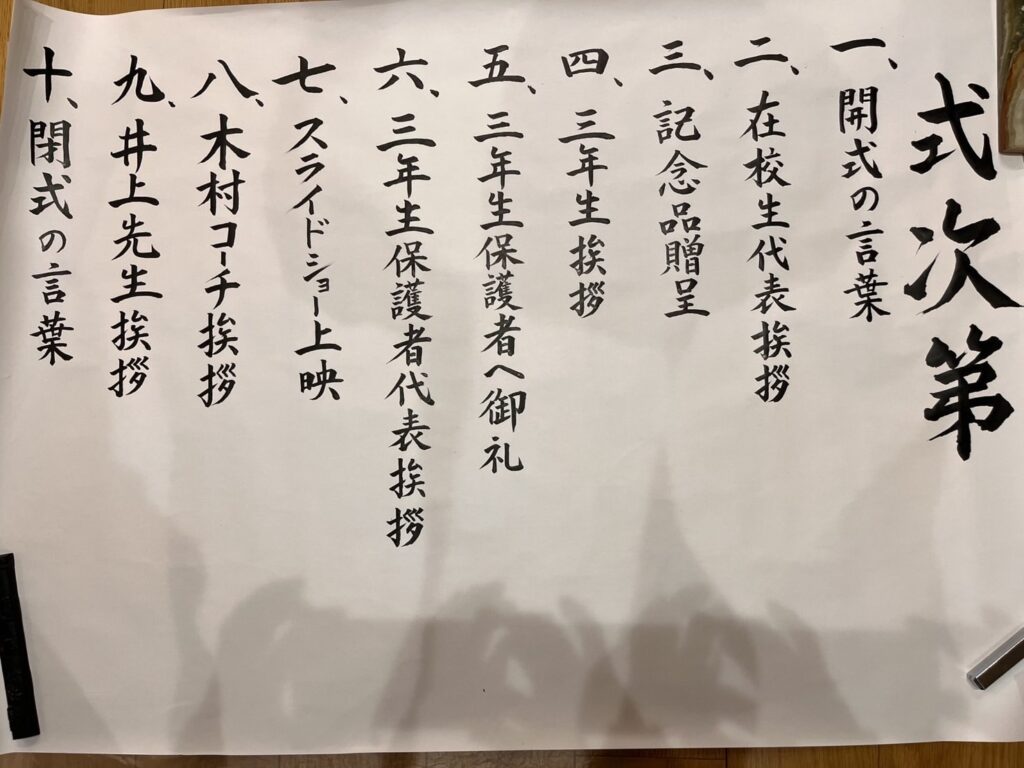 式次第
一、開式の言葉
二、在校生代表挨拶
三、記念品贈呈
四、三年生挨拶
五、三年生保護者へ御礼
六、三年生保護者代表挨拶
七、スライドショー上映
八、木村コーチ挨拶
九、井上先生挨拶
十、閉式の言葉